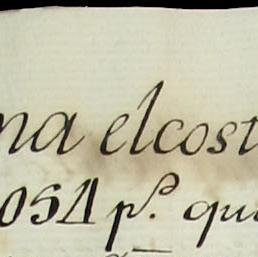 na elcost
051 p.º qu